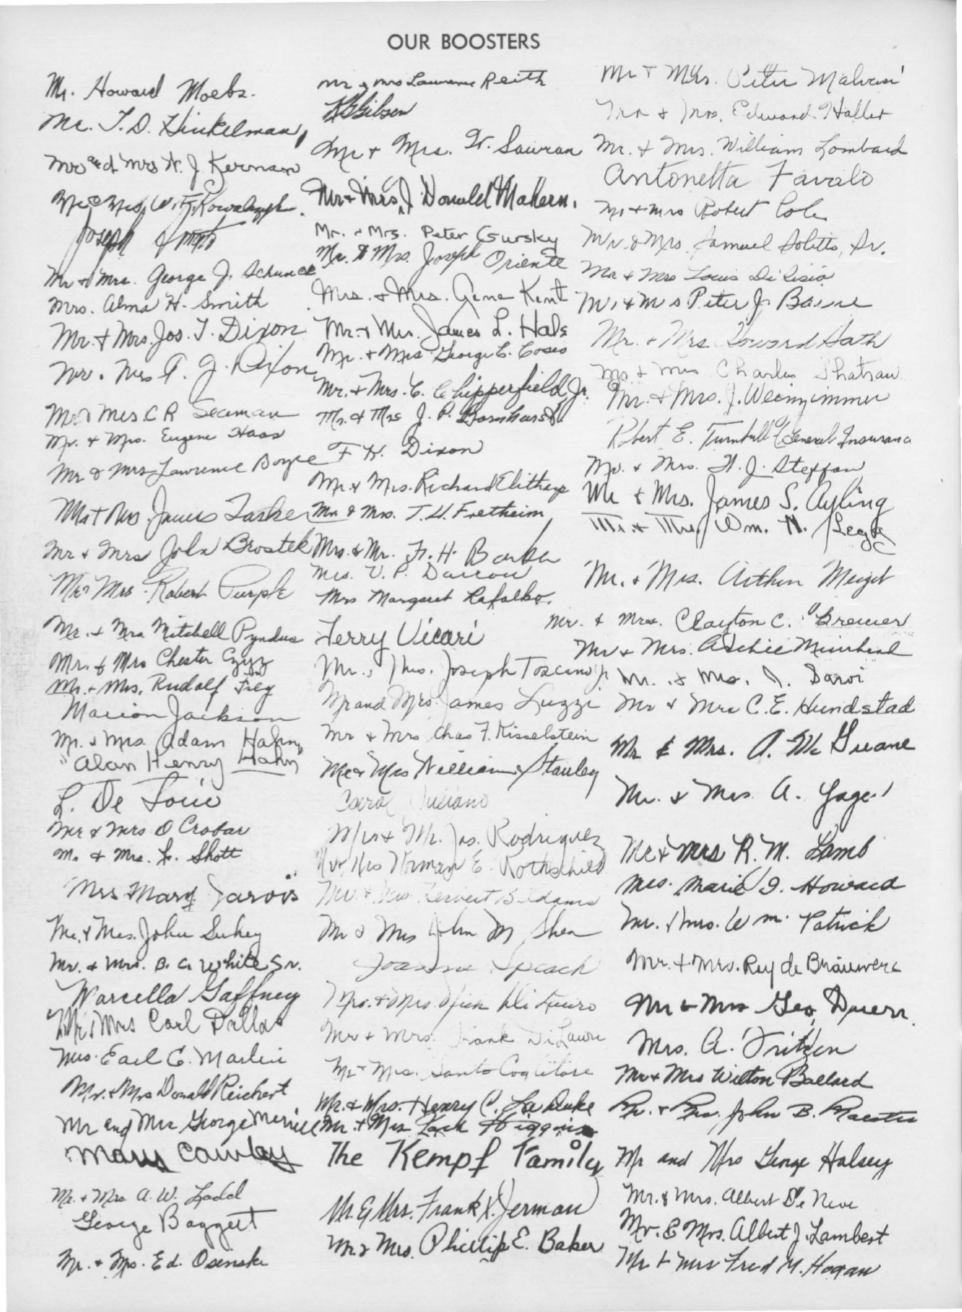 OUR BOOSTERS
Mr. Howard Moebs.
Mr. T. D. Hinkelman
Mr and Mrs A. J. Kernan
Mr & Mrs W. F.
Joseph
Mr & Mrs. George J. Schunce
Mrs. Alma H. Smith
Mr. + Mrs. Jos. T. Dixon
Mr. Mrs A. J. Dixon
Mr & Mrs C R Seaman
Mr. & Mrs. Eugene Haas
Mr & Mrs Lawrence Boyce
Mr + Mrs James Tasker
Mr & Mrs John Brostek
Mr Mrs Robert Purple
Mr. & Mrs Mitchell Pyndus
Mr. & Mrs Chester Czyz
Mr. + Mrs. Rudolf Frey
Marion Jackson
Mr. & Mrs Adam Hahn
"Alan Henry Hahn"
L. De Louie
Mr & Mrs D Crobar
Mr. & Mrs. L. Shott
Mrs Mary Jarvis
Mr. & Mrs. John Suhey
Mr. & Mrs. B. A. White Sr.
Marcella Gaffney
Mr & Mrs Carl Dallas
Mrs. Earl C. Marlin
Mr. & Mrs Donald Reichert
Mr and Mrs George Merrill
Mary Cawley
Mr. & Mrs A. W. Ladd
George Baggert
Mr. & Mrs. Ed. Osenske
Mr & Mrs Lawrence Reith
Gibson
Mr + Mrs. W. Sauran
Mr & Mrs J Donald Makern.
Mr. & Mrs. Peter Gursky
Mr. & Mrs. Joseph Oriente
Mrs. & Mrs. Gene Kent
Mr. & Mrs. James L. Hals
Mr. & Mrs George C. Cosis
Mr. & Mrs. C. Chipperfield Jr.
Mr. & Mrs J. P. Bornhurst
F. H. Dixon
Mr & Mrs. Richard Elithorp
Mr & Mrs. T. H. Fretheim
Mrs. & Mr. F. H. Barba
Mrs. V. P. Darrow
Mrs Margaret Rafalko.
Terry Vicari
Mr. & Mrs. Joseph Toscano Jr
Mr and Mrs James Luzzi
Mr & Mrs Chas F. Kisselstein
Mr & Mrs William Stanley
Carol Juliano
Mrs & Mr. Jos. Rodriguez
Mr. Mrs Norman E. Rothschild
Mr & Mrs. B. Adams
Mr & Mrs John M Shea
Joanne Speach
Mr. & Mrs Nick
Mr & Mrs. Frank DiLauro
Mr & Mrs. Santo Cogliitore
Mr. & Mrs. Henry C. La Duke
Mr. & Mrs Jack Higgins
The Kempf Family
Mr. & Mrs. Frank X. Jerman
Mr & Mrs. Phillip E. Baker
Mr + Mrs. Peter Malvasi
Mr & Mrs. Edward Haller
Mr. & Mrs. William Lombard
Antonetta Favalo
Mr & Mrs Robert Cole
Mr. & Mrs. Samuel Politts, Sr.
Mr & Mrs Louis DeLisio
Mr & Mrs Peter J. Barone
Mr. & Mrs. Howard Hath
Mr & Mrs Charles Shatraw
Mr. & Mrs. J. Weingimmer
Robert E. Turnbull General Insurance
Mr. & Mrs. H. J. Steffan
Mr & Mrs. James S. Ayling
Mr. & Mrs. Wm. N. Legge
Mr. & Mrs. Arthur Meigel
Mr. & Mrs. Clayton C. Brewer
Mr & Mrs. Archie Minchral
Mr. & Mrs. J. Daroi
Mr & Mrs C. E. Hundstad
Mr & Mrs. A. McGuane
Mr. & Mrs A. Yagel
Mr & Mrs R. M. Lamb
Mrs. Marie I. Howard
Mr. & Mrs. Wm. Patrick
Mr. & Mrs. Rey de Brauwere
Mr & Mrs Geo Duerr.
Mrs. A. Fritzen
Mr & Mrs Wilton Ballard
Mr. & Mrs. John B.
Mr and Mrs George Halsey
Mr. & Mrs. Albert De Neve
Mr. & Mrs. Albert J. Lambert
Mr & Mrs Fred M. Hogan